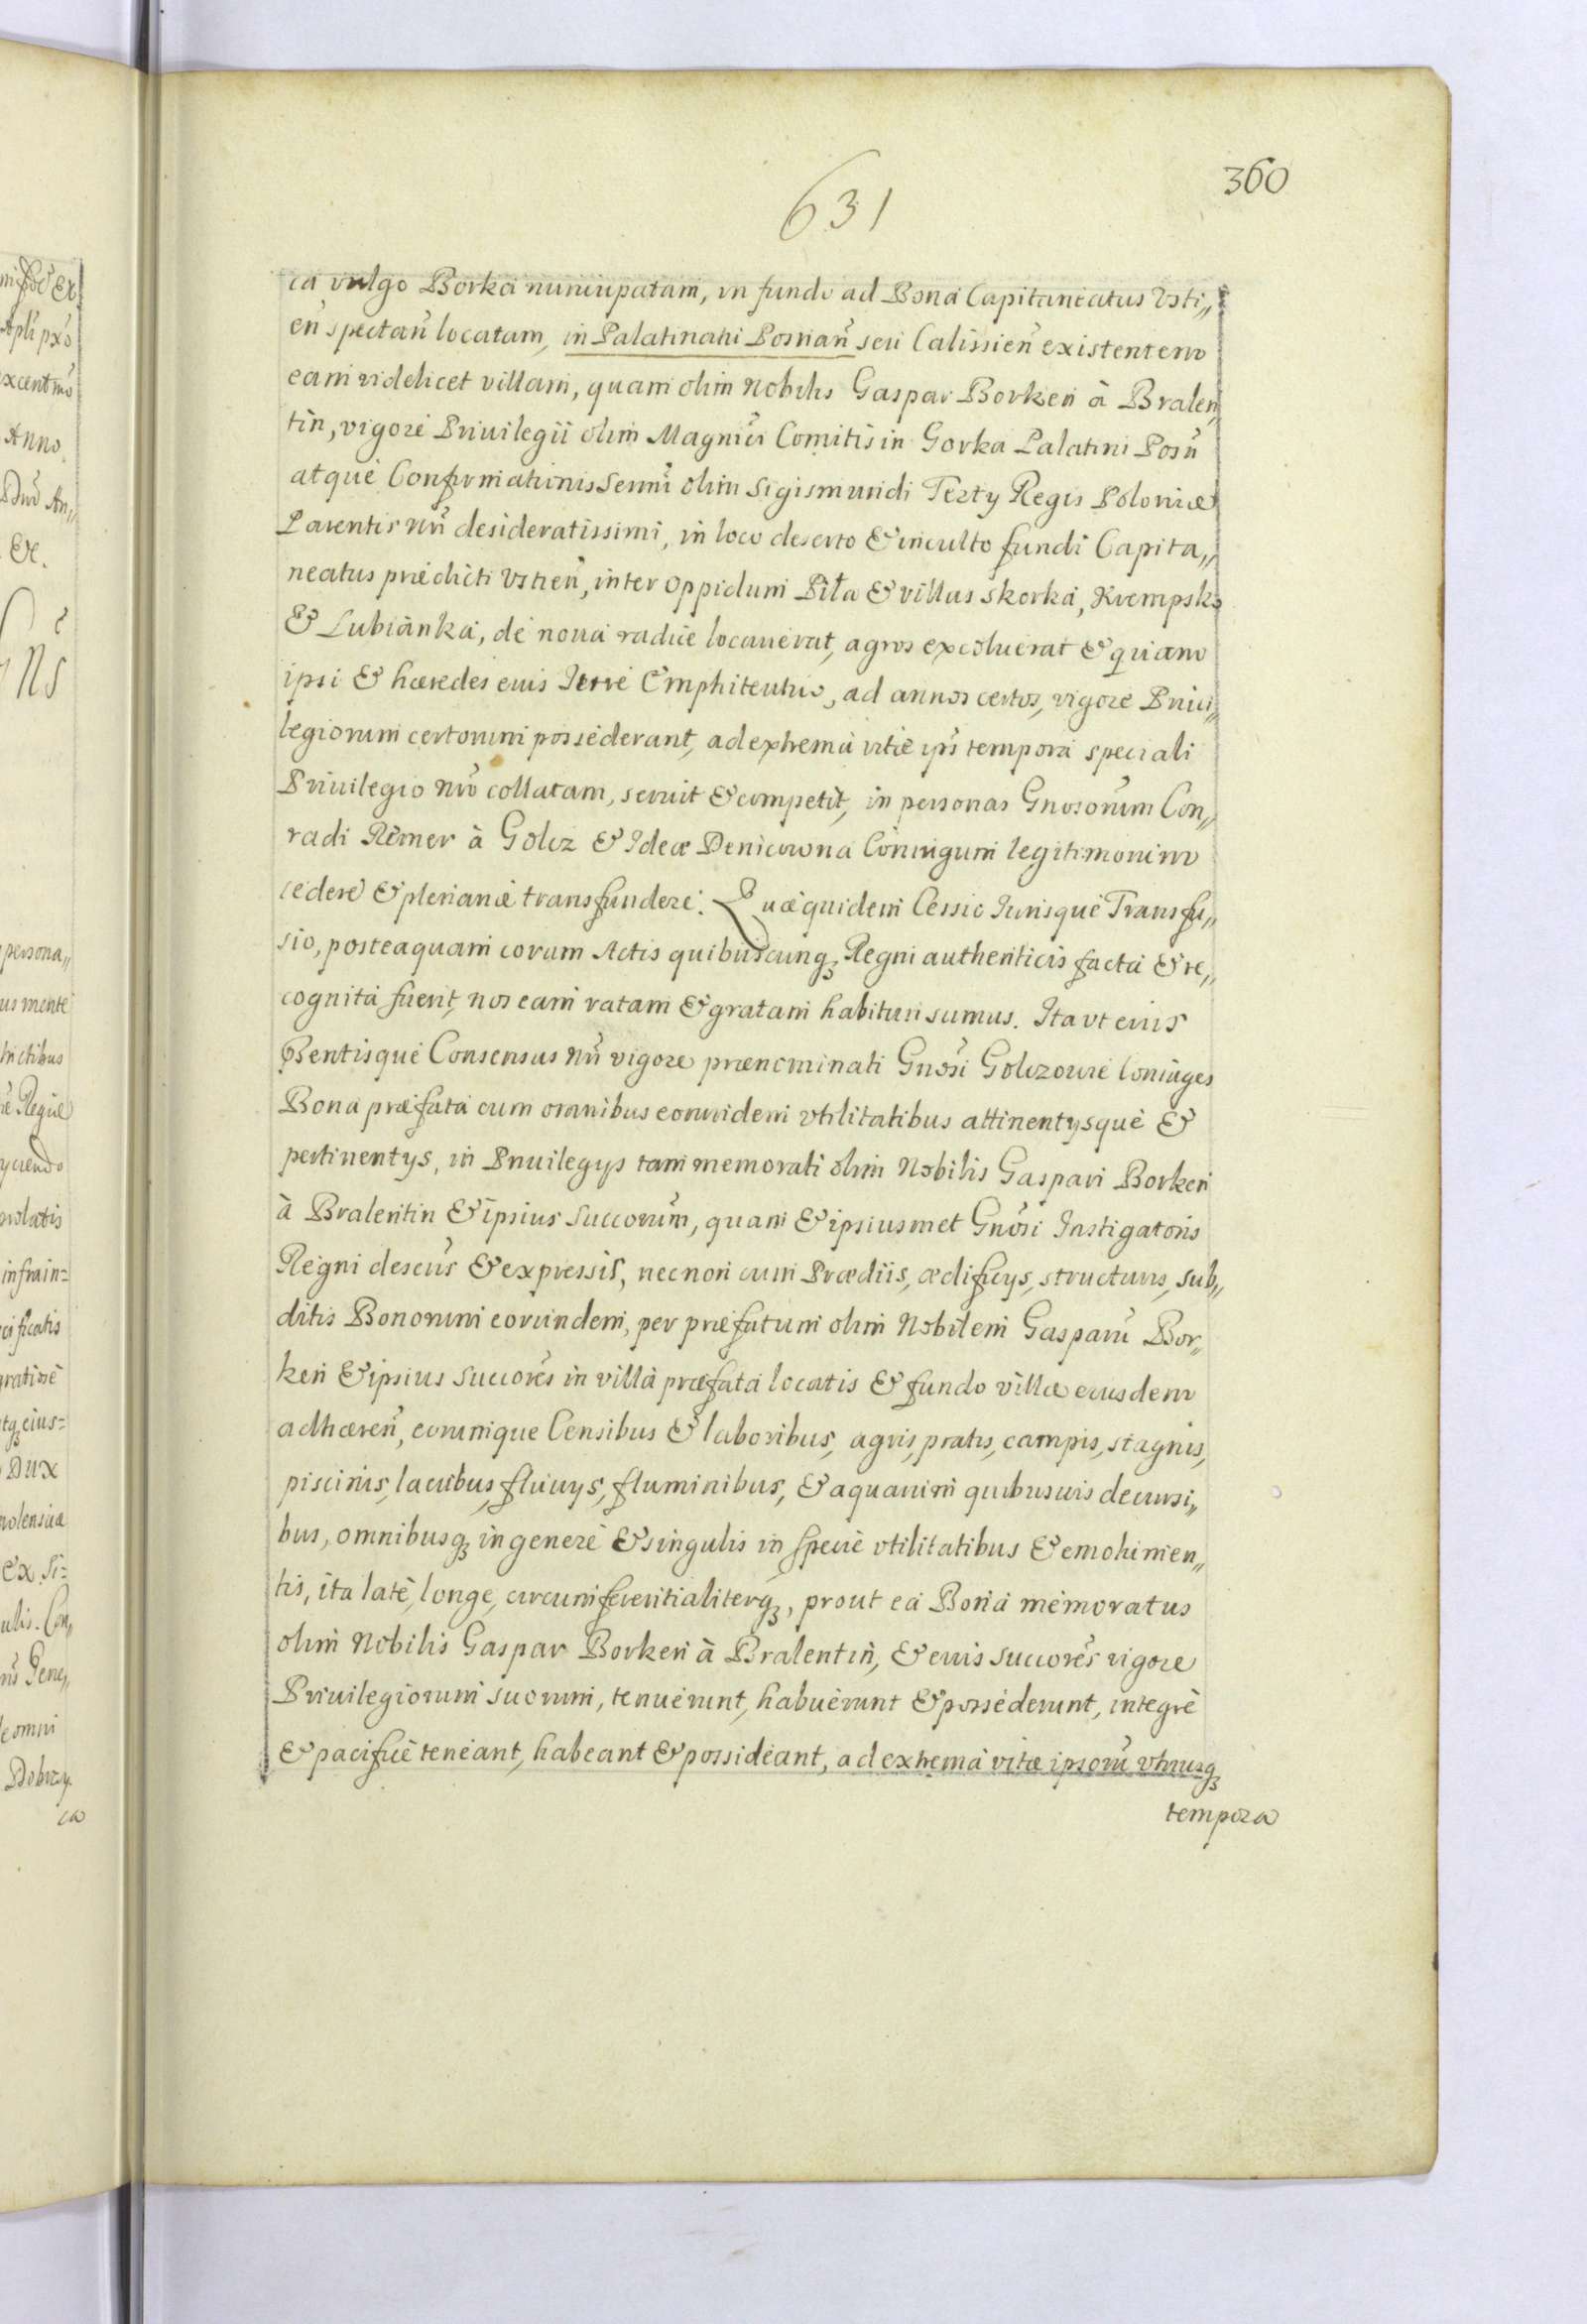 360
631
ca vulgo Borka nuncupatam, in fundo ad Bona Capitaneatus Vsti„
eñ spectañ locatam, in Palatinatu Posnañ seu Calissieñ existentem
eam videlicet villam, quam olim Nobilis Gaspar Borken à Bralen„
tin, vigore Priuilegii olim Magnici Comitis in Gorka Palatini Posñ
atque Confirmationis Sermi olim Sigismundi Terty Regis Poloniæ
Parentis nrĩ desideratissimi, in loco deserto & inculto fundi Capita„
neatus prædicti Vstieñ, inter oppidum Piła & villas Skorka, Krempsko
& Lubianka, de noua radice locauerat, agros excoluerat & quam
ipsi & hæredes euis Iure Emphiteutico, ad annos certos, vigore Priui„
legiorum certorum possederant, ad extrema vitæ ipsĩ tempora speciali
Priuilegio nro collatam, seruit & competit, in personas Gnosorum Con„
radi Remer à Golcz & Ideæ Denicowna Coniugum legitimorum
cedere & plenarie transfundere. Quæ quidem Cessio Iurisque Transfu„
sio, posteaquam coram Actis quibuscunqꝫ Regni authenticis facta & re„
cognita fuerit, nos eam ratam & gratam habituri sumus. Ita vt euis
Pentisque Consensus nrĩ vigore prænominati Gnosi Golczowie Coniuges
Bona præfata cum omnibus eorundem vtilitatibus attinentysque &
pertinentys, in Priuilegys tam memorati olim Nobilis Gaspari Borken
à Bralentin & ipsius Succorum, quam & ipsiusmet Gnosi Instigatoris
Regni descris & expressis, necnon cum Prædiis, ædificys, structuris, sub„
ditis Bonorum eorundem, per præfatum olim Nobilem Gasparũ Bor„
ken & ipsius Succores in villa præfata locatis & fundo villæ eiusdem
adhæreñ, eorumque Censibus & laboribus, agris, pratis, campis, stagnis,
piscinis, lacubus, fluuys, fluminibus, & aquarum quibusuis decursi„
bus, omnibusqꝫ in genere & singulis in specie vtilitatibus & emolumen„
tis, ita late, longe, circumferentialiterqꝫ, prout ea Bona memoratus
olim Nobilis Gaspar Borken à Bralentin, & euis Succores vigore
Priuilegiorum suorum, tenuerunt, habuerunt & possederunt, integre
& pacifice teneant, habeant & possideant, ad extrema vitæ ipsorũ vtriusqꝫ
tempora